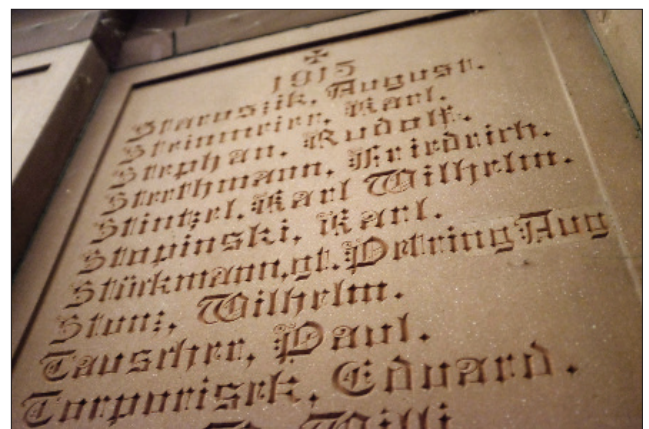 1915
Staruszik, August.
Steinmeier, Karl.
Stephan, Rudolf.
Steethmann, Friedrich.
Stintzel, Karl Wilhelm.
Stopinski, Karl.
Stückmann, gt. Petring Aug
Stunz, Wilhelm.
Tauscher, Paul.
Eduard.
Willi